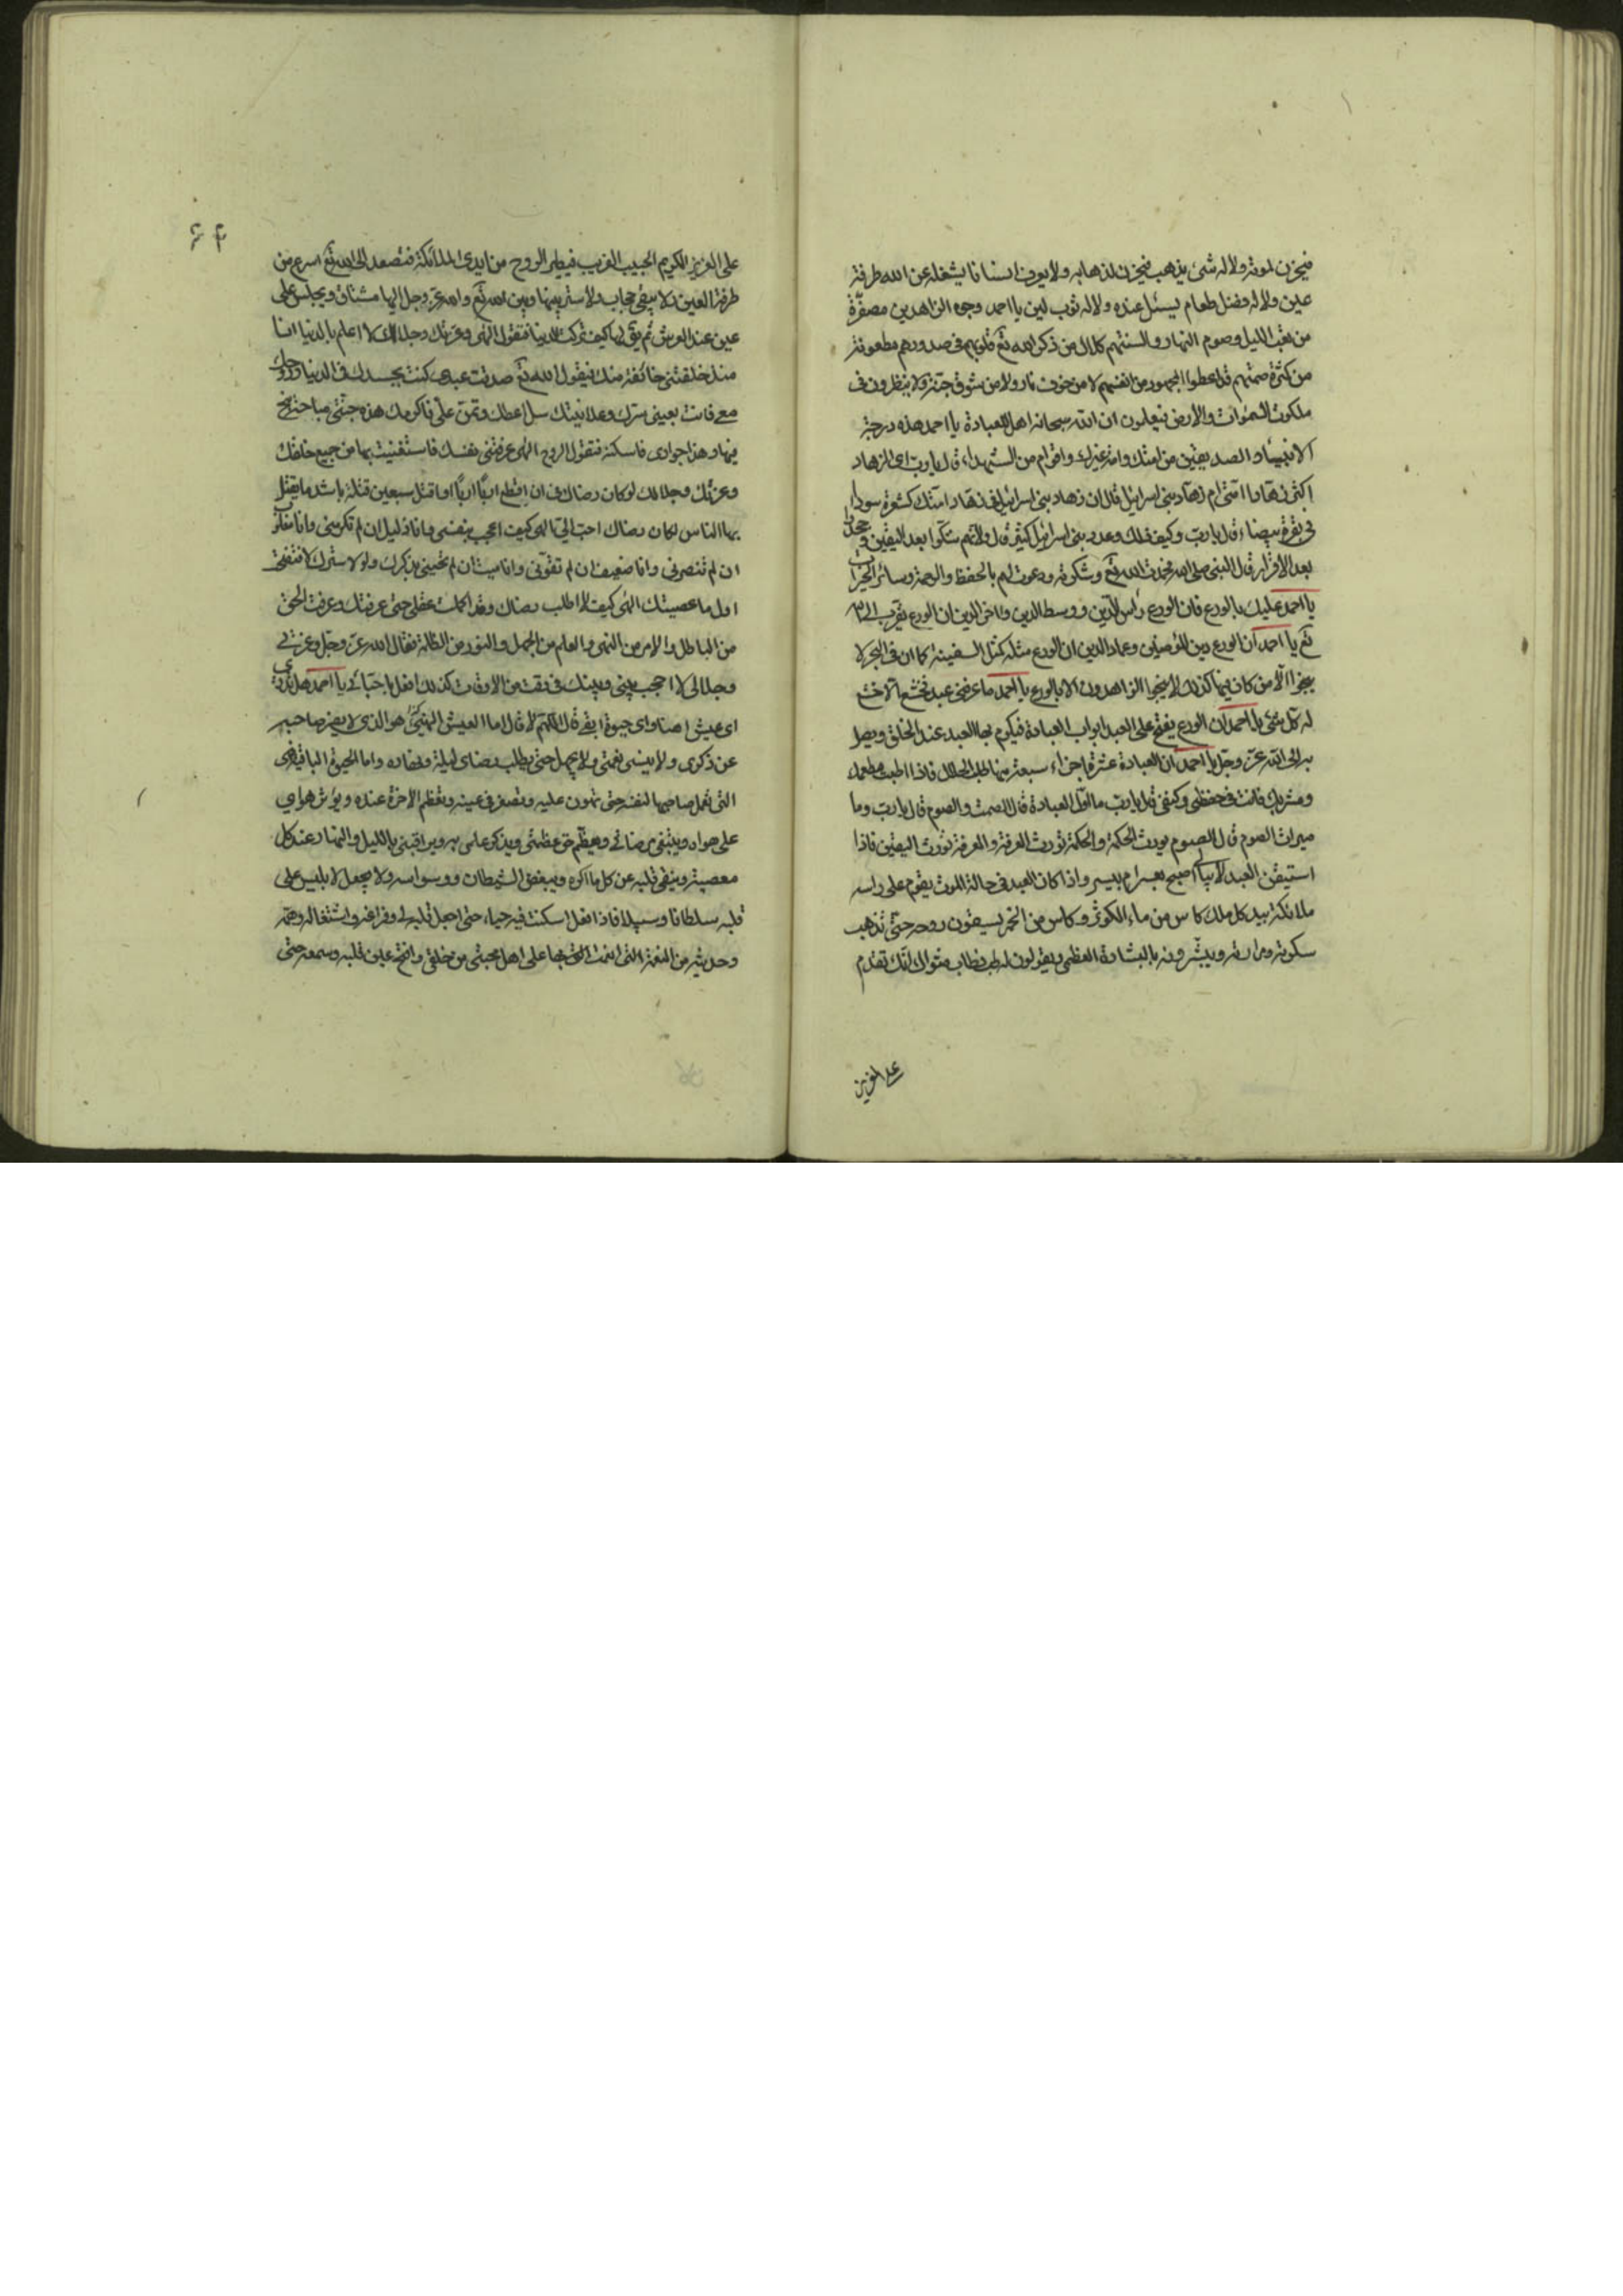 فيحزن لموته ولا له شئ يذهب فيحزن لذهابه ولا يعرفه انسانا يشغله عن الله طرفة
عين ولا له فضل طعام يسئل عنده ولا له ثوب لين يا احمد وجوه الزاهدين مصفرّة
من تعب الليل وصوم النهار والسنتهم كلال من ذكر الله تع قلوبهم فى صدورهم مطعونة
من كثرة صمتهم قد اعطوا المجهود من انفسهم لا من خوف نار ولا من شوق جنة ولا ينظرون فى
ملكوت السموات والأرض فيعلمون ان الله سبحانه اهل للعبادة يا احمد هذه درجة
الانبياء والصديقين من امتك وامة غيرك واقوام من الشهداء قال يا ربّ اى الزهاد
اكثر زهّاد امتى ام زهّاد بنى اسرائيل قال ان زهاد بنى اسرائيل فى زهّاد امتك كشعرة سوداء
فى بقرة بيضاء قال يا ربّ وكيف ذلك وعدد بنى اسرائيل كثير قال لانهم شكّوا بعد اليقين وجحدوا
بعد الاقرار قال النبى صلى الله فحمدت الله تع وشكرته ودعوت لهم بالحفظ والرحمة وسائر الخيرات
يا احمد عليك بالورع فان الورع رأس الدّين ووسط الدين واخر الدين ان الورع يقرب الى الله
تع يا احمد ان الورع دين المؤمنين وعماد الدين ان الورع مثله كمثل السفينة كما ان فى البحر لا
ينجوا الّا من كان فيها كذلك لا ينجوا الزاهدون الا بالورع يا احمد ما عرفنى عبد فخشع الّا خشع
له كل شئ يا احمد ان الورع يفتح على العبد ابواب العبادة فيكرم بها العبد عند الخلق ويصل
به الى الله عزّ وجل يا احمد ان العبادة عشرة اجزاء سبعة منها طلب الحلال فاذا اطبت مطعمك
ومشربك فانت فى حفظى وكنفى قال يا ربّ ما اول العبادة قال الصمت والصوم قال يا ربّ وما
ميراث الصوم قال الصوم يورث الحكمة والحكمة تورث المعرفة والمعرفة تورث اليقين فاذا
استيقن العبد لا يبالى اصبح بعسر ام بيسر واذا كان العبد فى حالة الموت يقوم على راسه
ملائكة بيد كل ملك كاس من ماء الكوثر وكاس من الخمر يسقون روحه حتى تذهب
سكرته ومرارته ويبشرونه بالبشارة العظمى ويقولون له طبت وطاب مثواك انّك تقدم
على العزيز
۶۴
على العزيز الكريم الحبيب القريب فيطير الروح من ايدى الملائكة فتصعد الى الله تع اسرع من
طرفة العين ولا يبقى حجاب ولا ستر بينها وبين الله تع والله عزّ وجل اليها مشتاق ويجلس على
عين عند العرش ثم يق لها كيف تركت الدنيا فتقول الهى وعزتك وجلالك لا اعلم بالدنيا انا
منذ خلقتنى خائفة منك فيقول الله تع صدقت عبدى كنت بجسدك فى الدنيا وروحك
معى فانت بعينى سرك وعلانيتك سل اعطك وتمنّ علىّ فاكرمك هذه جنتى مباحة فتبحبح
فيها وهذا جوارى فاسكنه فتقول الروح الهى عرفتنى نفسك فاستغنيت بها من جميع خلقك
وعزتك وجلالك لو كان رضاك فى ان اقطع اربًا اربًا او اقتل سبعين قتلة باشد ما يقتل
بها الناس لكان رضاك احبّ الىّ الهى كيف اعجب بنفسى وانا ذليل ان لم تكرمنى وانا مغلوب
ان لم تنصرنى وانا ضعيف ان لم تقوّنى وانا ميت ان لم تحينى بذكرك ولولا سترك لافتضحت
اول ما عصيتك الهى كيف لا اطلب رضاك وقد اكملت عقلى حتى عرفتك وعرفت الحق
من الباطل والامر من النهى والعلم من الجهل والنور من الظلمة فقال الله عزّ وجل وعزتى
وجلالى لا احجب بينى وبينك فى وقت من الاوقات كذلك افعل باحبّائى يا احمد هل تدرى
اى عيش اهنا واى حيوة ابقى قال اللهمّ لا قال اما العيش الهنىّ هو الذى لا يفتر صاحبه
عن ذكرى ولا ينسى نعمتى ولا يجهل حقى يطلب رضاى ليله ونهاره واما الحيوة الباقية فهى
التى يعمل صاحبها لنفسه حتى تهون عليه وتصغر فى عينه وتعظم الاخرة عنده ويؤثر هواى
على هواه ويبتغى مرضاتى ويعظم حق عظمتى ويذكر علمى به ويراقبنى بالليل والنهار عند كل
معصية وينقى قلبه عن كل ما اكره ويبغض الشيطان ووسواسه ولا يجعل لابليس على
قلبه سلطانا وسبيلا فاذا فعل اسكنت فيه حبا حتى اجعل قلبه لى وفراغه واشتغاله وهمّه
وحديثه من النعمة التى انعمت بها على اهل محبتى من خلقى وافتح عين قلبه وسمعه حتى